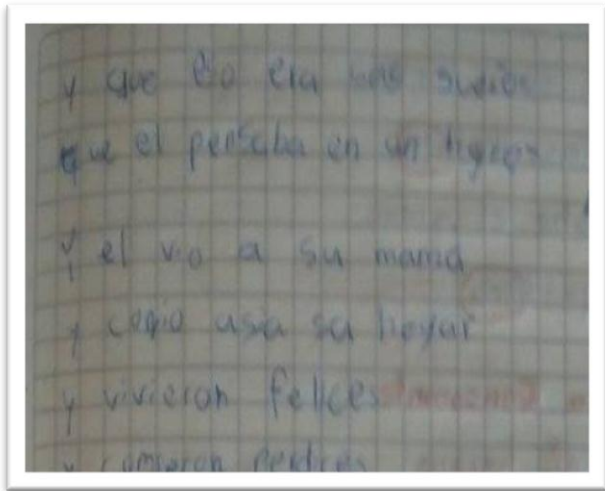 y que eso era un sueño
que el pensaba en un
y el vio a su mamá
y corrio asia su hoyar
y vivieron felices
y comieron perdices